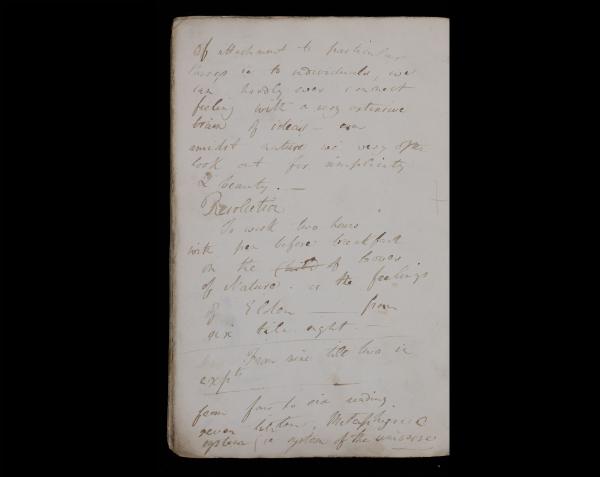 Of attachment to particular
things ie to individuals, we
can hardly ever connect
feeling with a very extensive
train of ideas – even
amidst nature we very often
look out for simplicity
& beauty. —
Resolution
To work two hours
with pen before breakfast
on the of Lover
of Nature. & the feelings
of Eldon — from
six till eight —
From nine till two in
expts —
from four to six reading.
seven till ten, Metaphysics
system (ie system of the universe